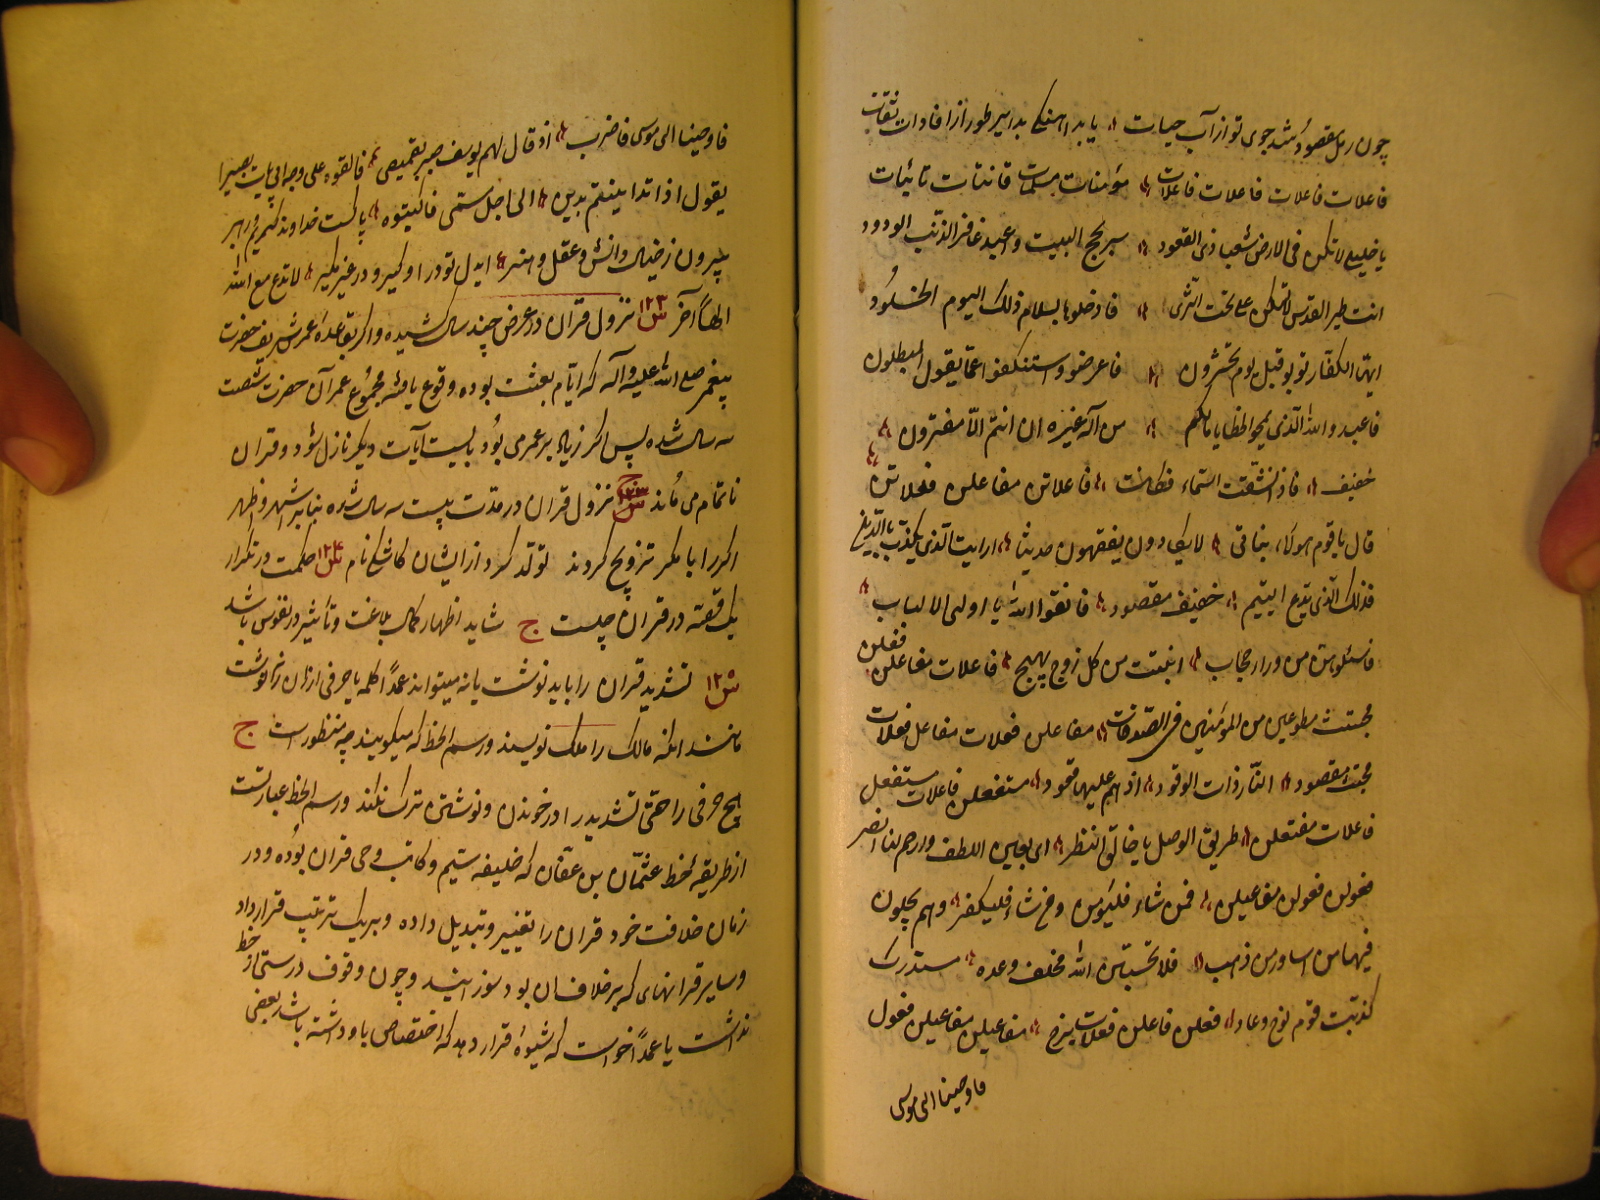 چون رمل مقصود شد جوی تو از آب حیات یا بد آهنگی بداسیر طور از افادات ثقات
فاعلات فاعلات فاعلات فاعلات مؤمنات مسلمات قانتات تائبات
یا خلیلی لا تکن فی الارض شعبا ذی القعود سر بحج البیت واعبد غافر الذنب الودود
انت طیر القدس لا تمکن علی تحت الثری فادخلوها بسلام ذلک الیوم الخلود
ایها الکفار توبوا قبل یوم تحشرون فاعرضوا واستنکفوا عما یقول المبطلون
فاعبدوا الله الذی یمحو الخطایا مالکم من اله غیره ان انتم الا مفترون
خفیف فاذا انشقت السماء فکانت فاعلاتن مفاعلن فعلاتن
قال یا قوم هولاء بناتی لا یکادون یفقهون حدیثا ارایت الذی یکذب بالدین
فذلک الذی یدع الیتیم خفیف مقصود فاتقوا الله یا اولی الالباب
فاسئلوهن من وراء حجاب انبتت من کل زوج بهیج فاعلات مفاعلن فعلن
مجتث مطوعین من المومنین فی الصدقات مفاعلن فعلات مفاعل فعلات
مجتث مقصود النار ذات الوقود اذ هم علیها قعود مستفعلن فاعلات مستفعل
فاعلات مفتعلن طریق الوصل یا خالق انظر ای بعین اللطف وارحم لنا انصر
فعولن فعولن مفاعیلن فمن شاء فلیؤمن ومن شاء فلیکفر وهم یحلون
فیها من اساور من ذهب فلا تحسبن الله مخلف وعده متدرک
کذبت قوم نوح وعاد فعلن فاعلن فعلات هزج مفاعیلن مفاعیلن فعول
فاوحینا الی موسی
فاوحینا الی موسی فاضرب اذ قال لهم یوسف صبر بقمیصی فالقوه علی وجه ابی یات بصیرا
یقول اذا تداینتم بدین الی اجل مسمی فاکتبوه پاکست خداوند کریم ورهبر
بیرون ز خیال و دانش و عقل و هنر ایدل تو در او گیر و در غیر مگیر لا تدع مع الله
الها آخر س ۱۲۳ نزول قران در عرض چند سال شده و اگر بقاعده عمر شریف حضرت
پیغمبر صلی الله علیه وآله که ایام بعثت بوده وقوع یافته مجموع عمر آن حضرت شصت
سه سال شده پس اگر زیاد بر عمری بود بایست آیات دیگر نازل شود و قران
ناتمام می ماند ج نزول قران در مدت بیست سه سال شده بنا بر اشهر و اظهر
اگر را با مگر تزویج کردند تولد کرد از ایشان کاشکی نام س ۱۲۴ حکمت در تکرار
یک قصه در قران چیست ج شاید اظهار کمال بلاغت و تأثیر در نفوس باشد
س ۱۲۵ تشدید قران را باید نوشت یا نه میتواند عمدا کلمه یا حرفی از آن را ننوشت
مانند انکه مالک را ملک نویسند و رسم الخط که میگویند چه منظور است ج
هیچ حرفی را حتی تشدید را در خوندن و نوشتن ترک نکند و رسم الخط عبارتست
از طریقه خط عثمان بن عفان که خلیفه سیم و کاتب وحی قران بوده و در
زمان خلافت خود قران را تغییر و تبدیل داده و بیک ترتیب قرار داد
و سایر قرانهای که بر خلاف ان بود سوزانید و چون وقوف درستی از خط
نداشت یا عمدا خواست که شیوه قرار دهد که اختصاص باو داشته باشد بعضی